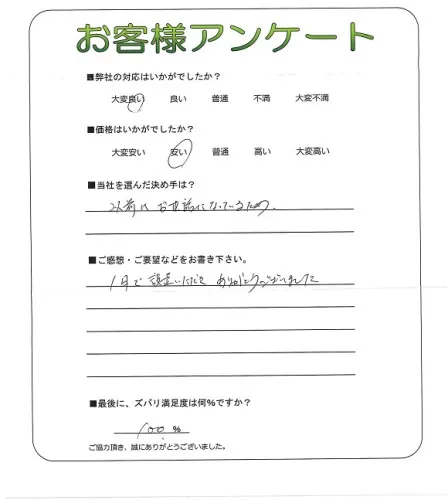 お客様アンケート
■弊社の対応はいかがでしたか？
大変良い 良い 普通 不満 大変不満
■価格はいかがでしたか？
大変安い 安い 普通 高い 大変高い
■当社を選んだ決め手は？
以前に お世話になっているため。
■ご感想・ご要望などをお書き下さい。
ありがとうございました
■最後に、ズバリ満足度は何%ですか？
100 %
ご協力頂き、誠にありがとうございました。